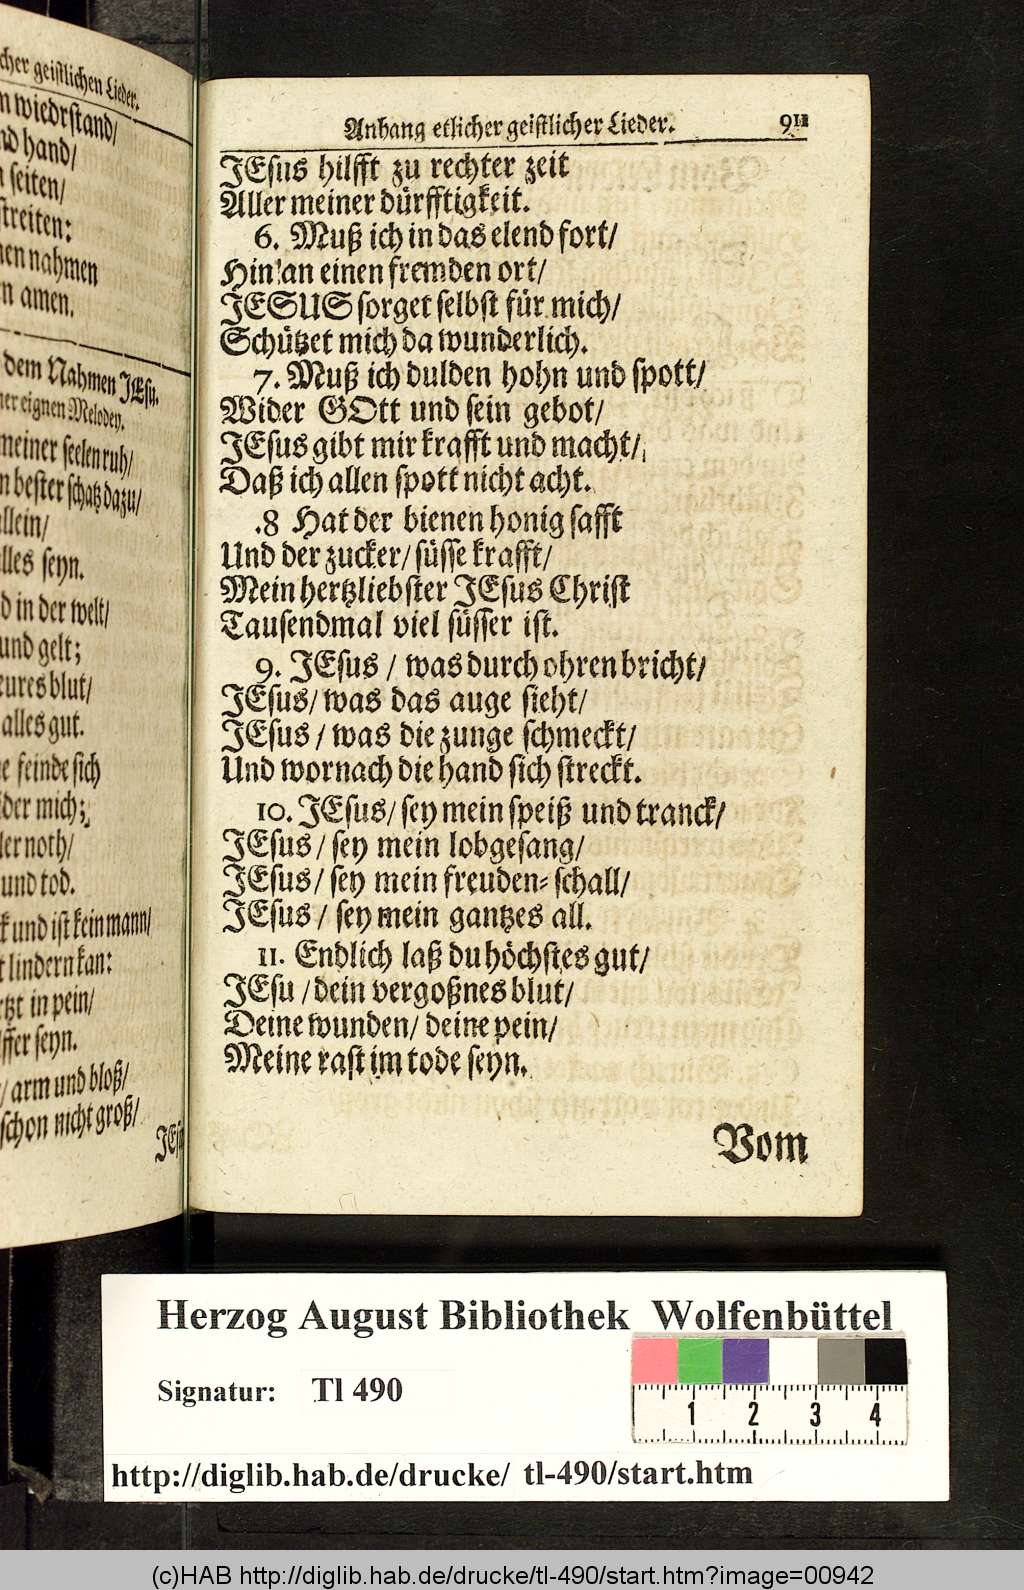 cher geistlichen Lieder.
wiedrstand/
hand/
seiten/
streiten:
nahmen
amen.
dem Nahmen JEsu.
eignen Melodey.
meiner seelen ruh/
bester schatz dazu/
allein/
alles seyn.
in der welt/
und gelt;
blut/
alles gut.
feinde sich
wider mich;
noth/
und tod.
und ist kein mann/
lindern kan:
in pein/
seyn.
arm und bloß/
schon nicht groß/
JEsus
Anhang etlicher geistlicher Lieder. 911
JEsus hilfft zu rechter zeit
Aller meiner dürfftigkeit.
6. Muß ich in das elend fort/
Hin an einen fremden ort/
JESUS sorget selbst für mich/
Schützet mich da wunderlich.
7. Muß ich dulden hohn und spott/
Wider GOtt und sein gebot/
JEsus gibt mir krafft und macht/
Daß ich allen spott nicht acht.
.8 Hat der bienen honig safft
Und der zucker/ süsse krafft/
Mein hertzliebster JEsus Christ
Tausendmal viel süsser ist.
9. JEsus / was durch ohren bricht/
JEsus/ was das auge sieht/
JEsus / was die zunge schmeckt/
Und wornach die hand sich streckt.
10. JEsus/ sey mein speiß und tranck/
JEsus / sey mein lobgesang/
JEsus / sey mein freuden-schall/
JEsus / sey mein gantzes all.
11. Endlich laß du höchstes gut/
JEsu / dein vergoßnes blut/
Deine wunden/ deine pein/
Meine rast im tode seyn.
Vom
Herzog August Bibliothek Wolfenbüttel
Signatur: Tl 490
1 2 3 4
http://diglib.hab.de/drucke/ tl-490/start.htm
(c)HAB http://diglib.hab.de/drucke/tl-490/start.htm?image=00942